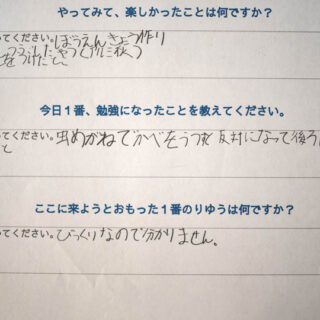 やってみて、楽しかったことは何ですか？
ってください。ぼうえんきょう作り
今日１番、勉強になったことを教えてください。
ってください。虫めがねでかべをうつすと反対になって後ろ
と
ここに来ようとおもった１番のりゆうは何ですか？
ってください。びっくりなので分かりません。